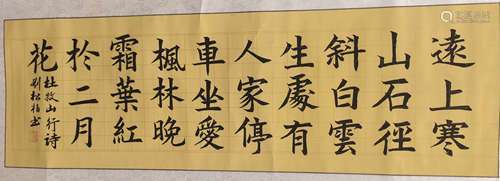 遠上寒
山石徑
斜白雲
生處有
人家停
車坐愛
楓林晚
霜葉紅
於二月
花
杜牧山行詩